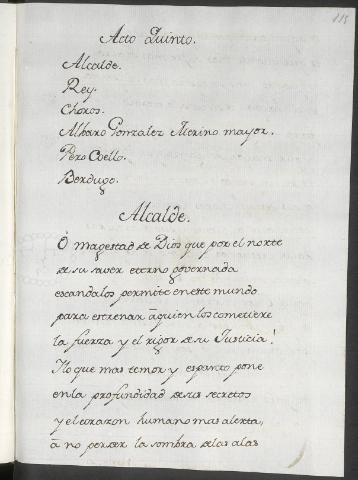 115
Acto Quinto.
Alcalde.
Rey.
Choros.
Albaro Gonzalez Merino mayor.
Pero Coello.
Berdugo.
Alcalde.
O magestad de Dios que por el norte
de su saver eterno governada
escandalos permite en este mundo
para estrenar à quien los cometiere
la fuerza y el rigor de su Justicia!
Y lo que mas temor y espanto pone
en la profundidad de sus secretos
y el corazon humano mas alerta,
à no perder la sombra de las alas